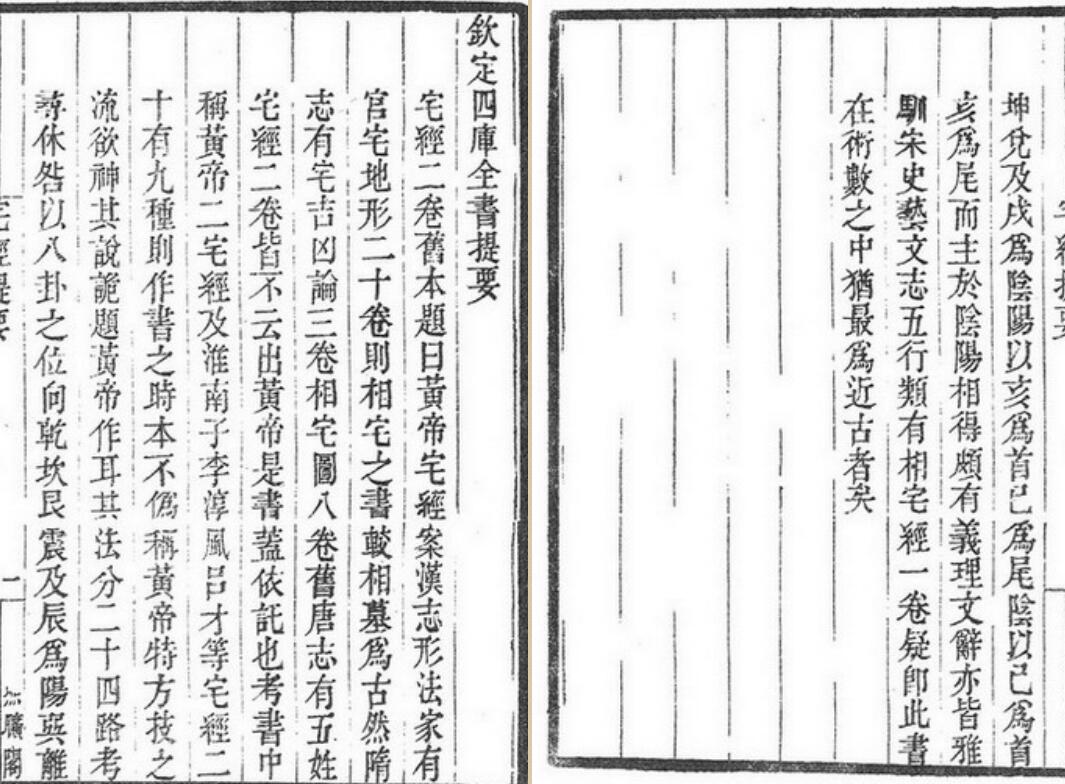 欽定四庫全書提要
宅經二卷舊本題曰黃帝宅經案漢志形法家有
官宅地形二十卷則相宅之書較相墓爲古然隋
志有宅吉凶論三卷相宅圖八卷舊唐志有五姓
宅經二卷皆不云出黃帝是書蓋依託也考書中
稱黃帝二宅經及淮南子李淳風呂才等宅經二
十有九種則作書之時本不僞稱黃帝特方技之
流欲神其說詭題黃帝作耳其法分二十四路考
尋休咎以八卦之位向乾坎艮震及辰爲陽巽離
坤兌及戌爲陰陽以亥爲首已爲尾陰以已爲首
亥爲尾而主於陰陽相得頗有義理文辭亦皆雅
馴宋史藝文志五行類有相宅經一卷疑卽此書
在術數之中猶最爲近古者矣